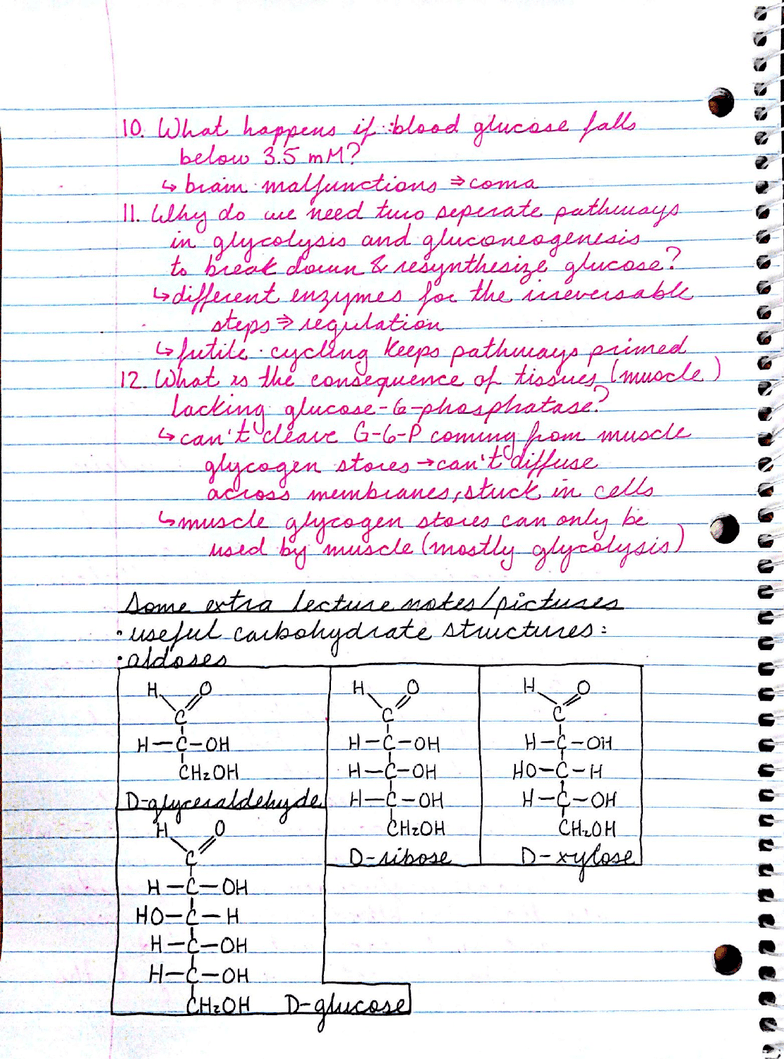 10. What happens if blood glucose falls
below 3.5 mM?
↳ brain malfunctions ⇒ coma
11. Why do we need two seperate pathways
in glycolysis and gluconeogenesis
to break down & resynthesize glucose?
↳ different enzymes for the irreversable
steps ⇒ regulation
↳ futile cycling keeps pathways primed
12. What is the consequence of tissues (muscle)
lacking glucose-6-phosphatase?
↳ can't cleave G-6-P coming from muscle
glycogen stores → can't diffuse
across membranes, stuck in cells
↳ muscle glycogen stores can only be
used by muscle (mostly glycolysis)
Some extra lecture notes/pictures
• useful carbohydrate structures:
• aldoses
H O
C
H-C-OH
CH₂OH
D-glyceraldehyde
H O
C
H-C-OH
H-C-OH
H-C-OH
CH₂OH
D-ribose
H O
C
H-C-OH
HO-C-H
H-C-OH
CH₂OH
D-xylose
H O
C
H-C-OH
HO-C-H
H-C-OH
H-C-OH
CH₂OH D-glucose